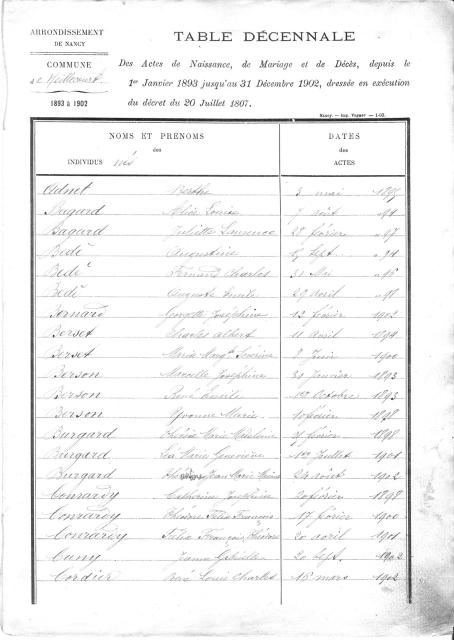 ARRONDISSEMENT
DE NANCY
COMMUNE
de
1893 à 1902
TABLE DÉCENNALE
Des Actes de Naissance, de Mariage et de Décès, depuis le
1er Janvier 1893 jusqu'au 31 Décembre 1902, dressée en exécution
du décret du 20 Juillet 1807.
Nancy. — Imp. Vagner — 1-03.
NOMS ET PRÉNOMS
des
INDIVIDUS nés
DATES
des
ACTES
Adnet Berthe 3 mai 1895
Bagard Alice Louise 7 août 94
Bagard Juliette 28 février 97
Bedé Augustine sept. 94
Bedé Fernand Charles 31 Mai 96
Bedé Auguste Emile 29 avril 98
Bernard Georgette Joséphine 12 février 1902
Berset Charles Albert 11 Avril 1894
Berset Marie 8 Juin 1900
Berson Marcelle Joséphine 31 Janvier 1893
Berson René 1er Octobre 1893
Berson Yvonne Marie 10 février 1898
Burgard Marie Madeleine février 1898
Burgard Marie Geneviève 1er Juillet 1901
Burgard Jean Marie 24 août 1902
Conrardy Catherine Joséphine 20 février 1898
Conrardy Félix François 17 février 1900
Conrardy Félix François 20 avril 1901
Cuny Jeanne Gabrielle 20 sept. 1902
Cordier René Louis Charles 18 mars 1902